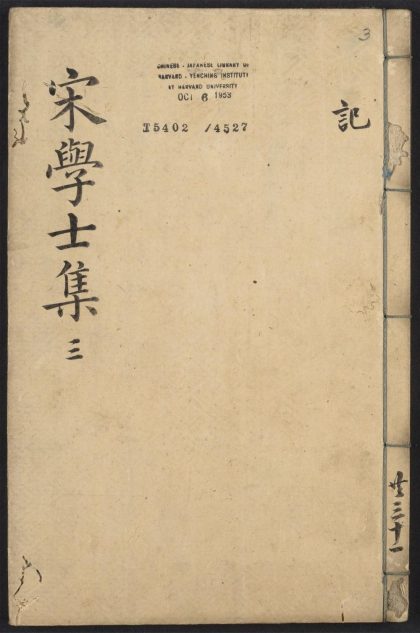 3
CHINESE - JAPANESE LIBRARY OF
HARVARD - YENCHING INSTITUTE
AT HARVARD UNIVERSITY
OCT 6 1953
T5402 /4527
記
宋學士集 三
共三十一